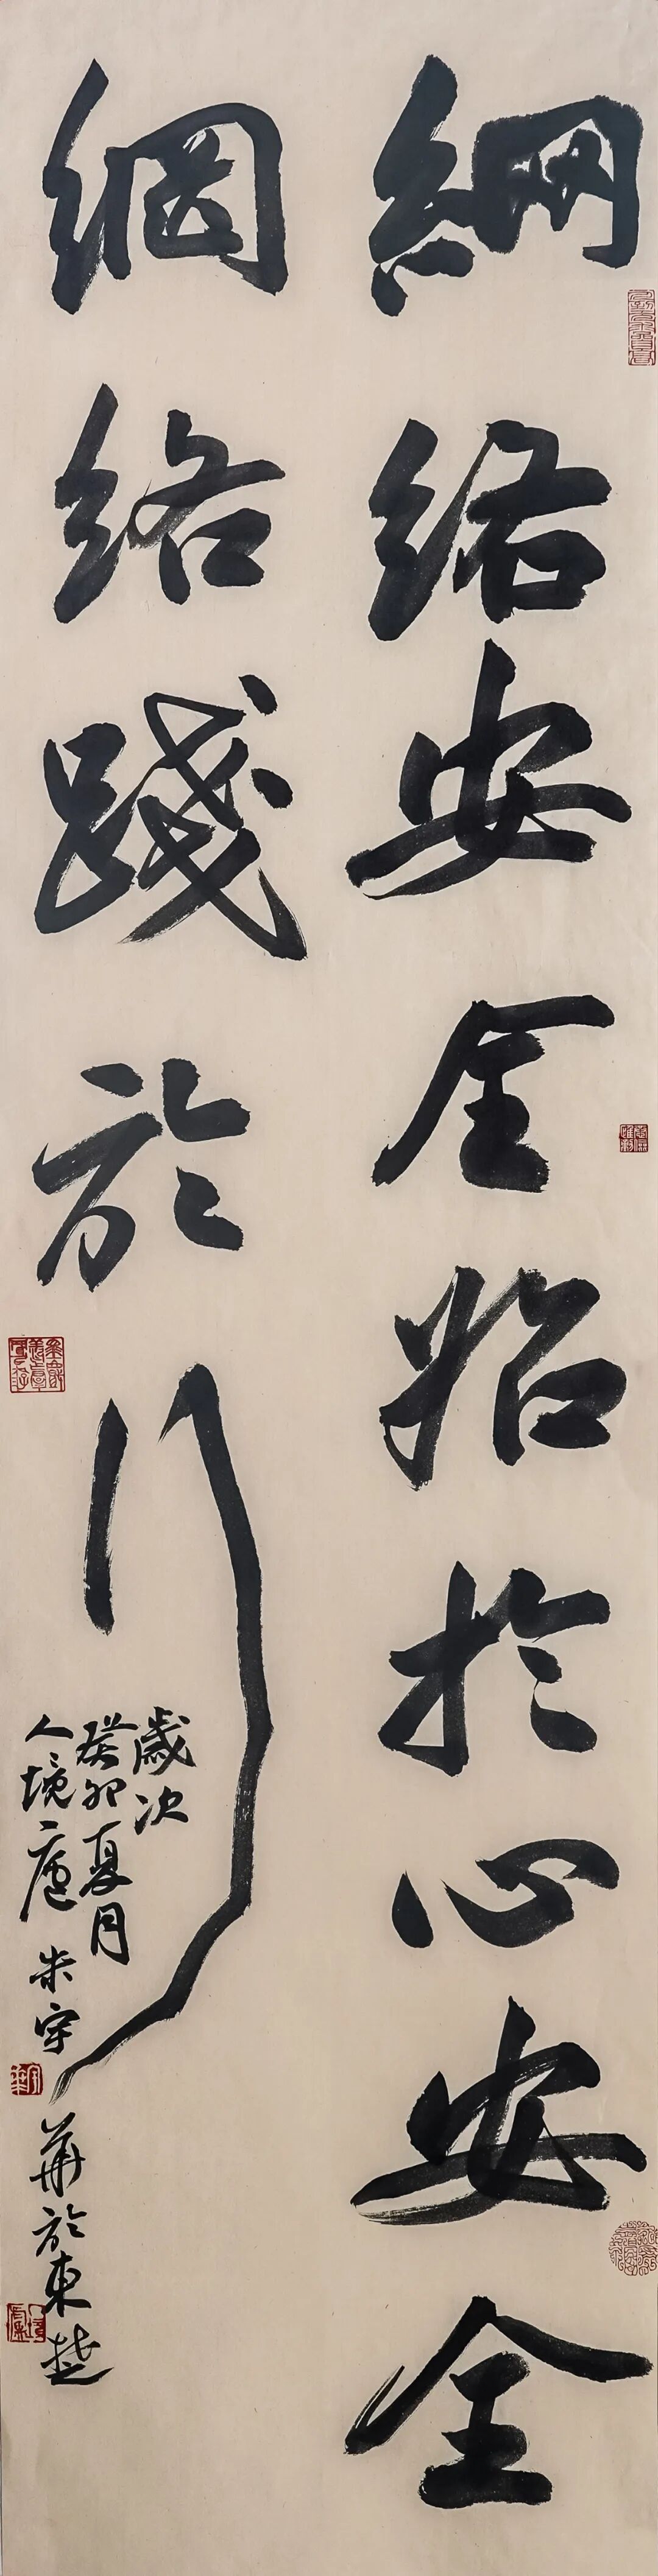 網絡安全始於心安全
網絡踐於行
歲次
癸卯夏月
人境廬朱宇華於東楚